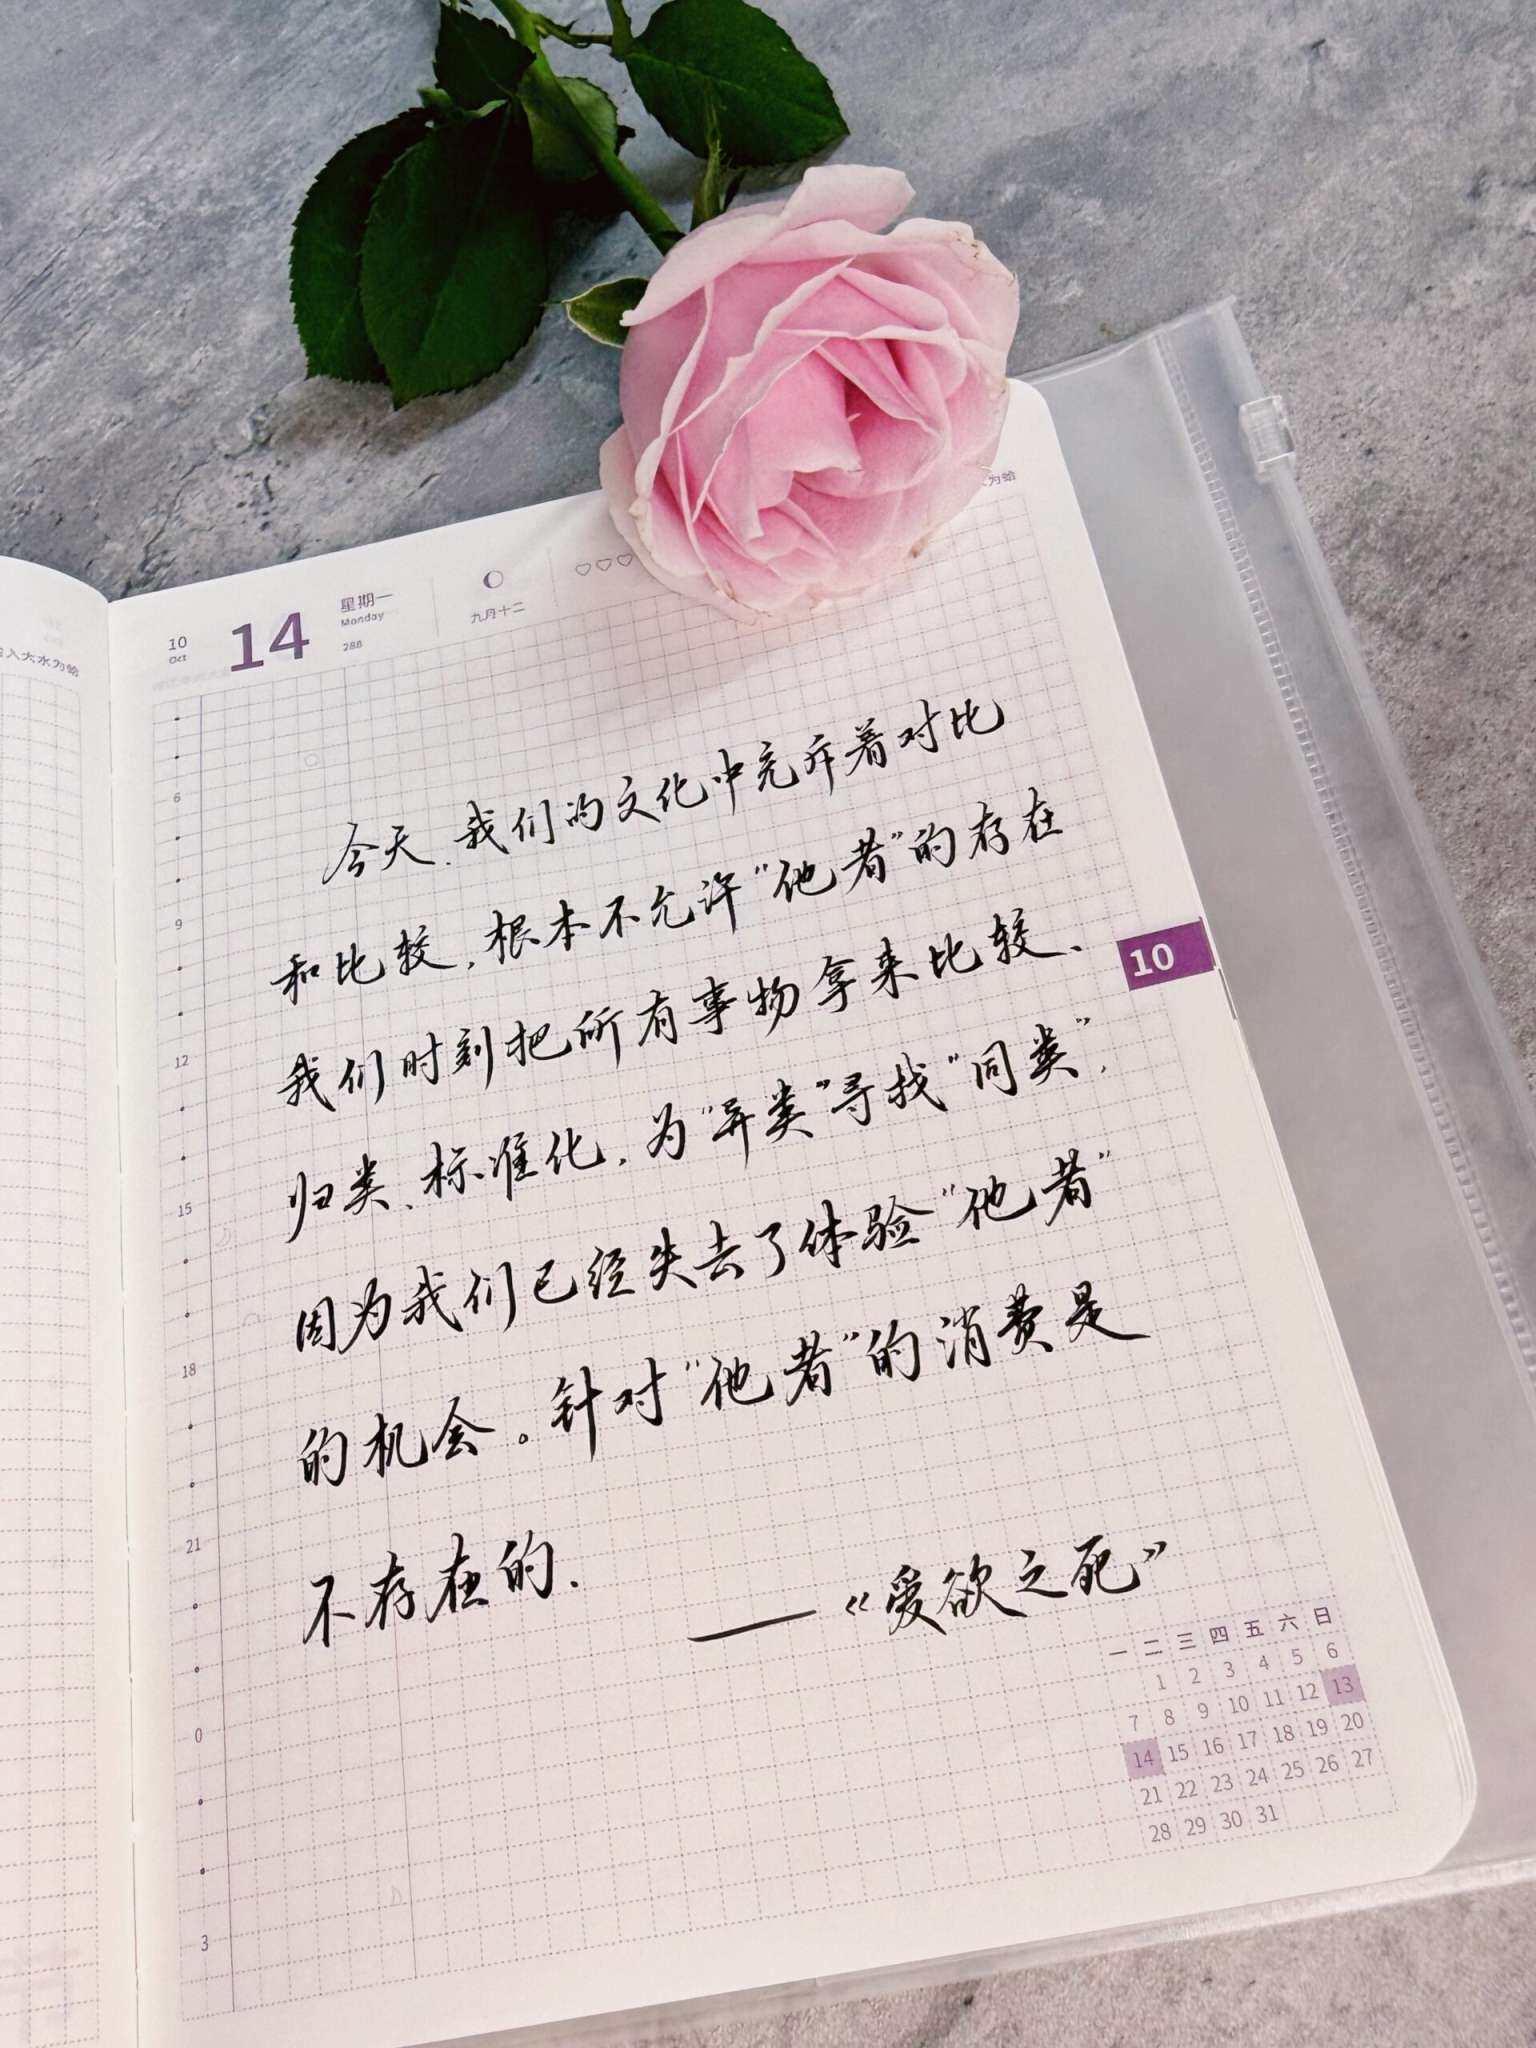 入大水为蛤
10
Oct
14
星期一
Monday
288
九月十二
为蛤
今天.我们的文化中充斥着对比
和比较,根本不允许“他者”的存在
我们时刻把所有事物拿来比较、
归类、标准化,为“异类”寻找“同类”,
因为我们已经失去了体验“他者”
的机会。针对“他者”的消费是
不存在的.
——《爱欲之死》
10
6
9
12
15
18
21
0
3
一 二 三 四 五 六 日
1 2 3 4 5 6
7 8 9 10 11 12 13
14 15 16 17 18 19 20
21 22 23 24 25 26 27
28 29 30 31